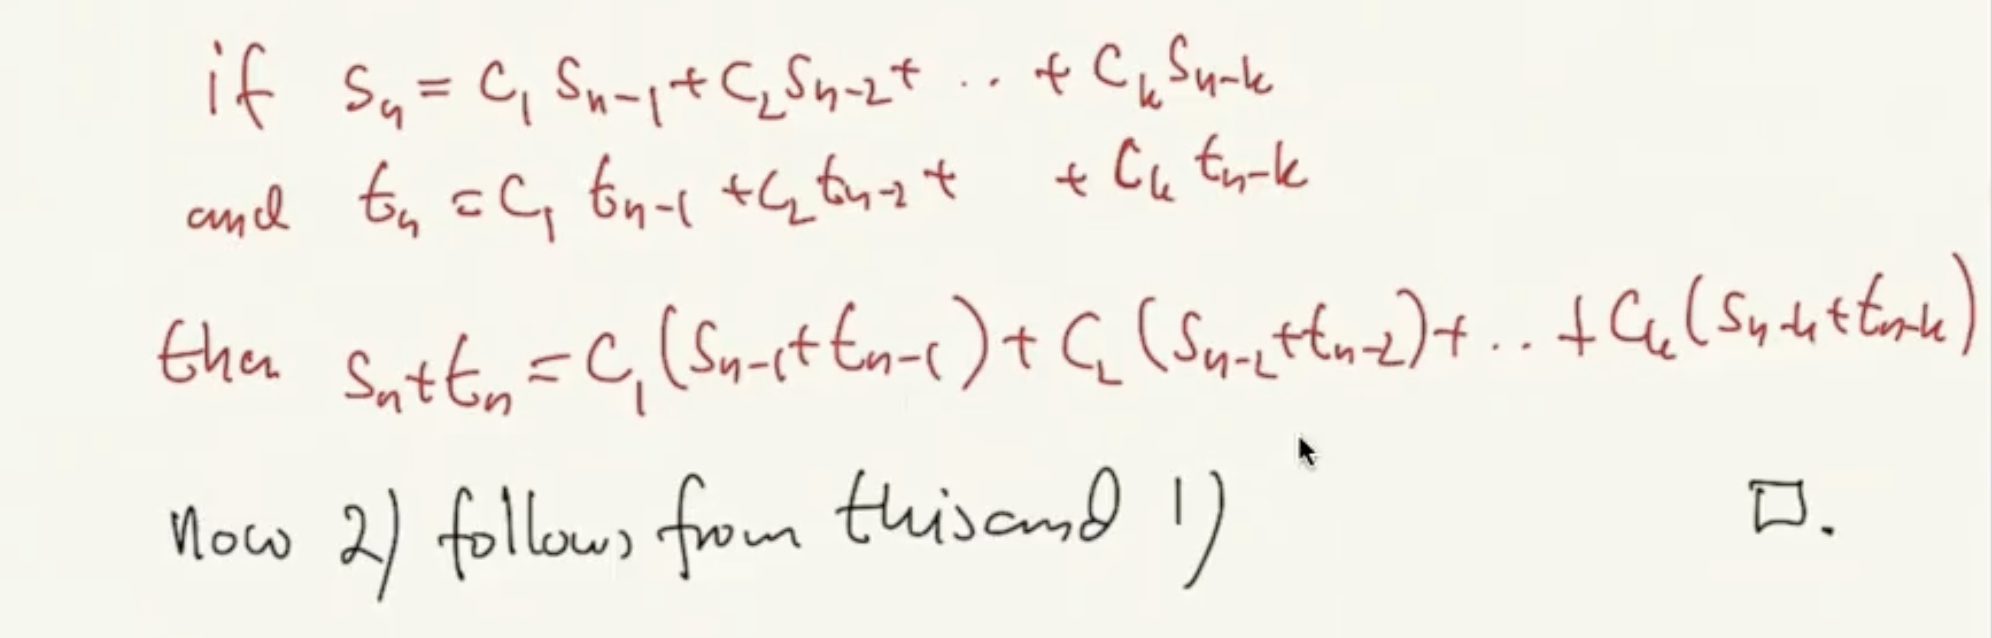 if Sₙ = C₁ Sₙ₋₁ + C₂ Sₙ₋₂ + .. + Cₖ Sₙ₋ₖ
and tₙ = C₁ tₙ₋₁ + C₂ tₙ₋₂ + + Cₖ tₙ₋ₖ
then Sₙ + tₙ = C₁ (Sₙ₋₁ + tₙ₋₁) + C₂ (Sₙ₋₂ + tₙ₋₂) + .. + Cₖ (Sₙ₋ₖ + tₙ₋ₖ)
Now 2) follows from this and 1) □.